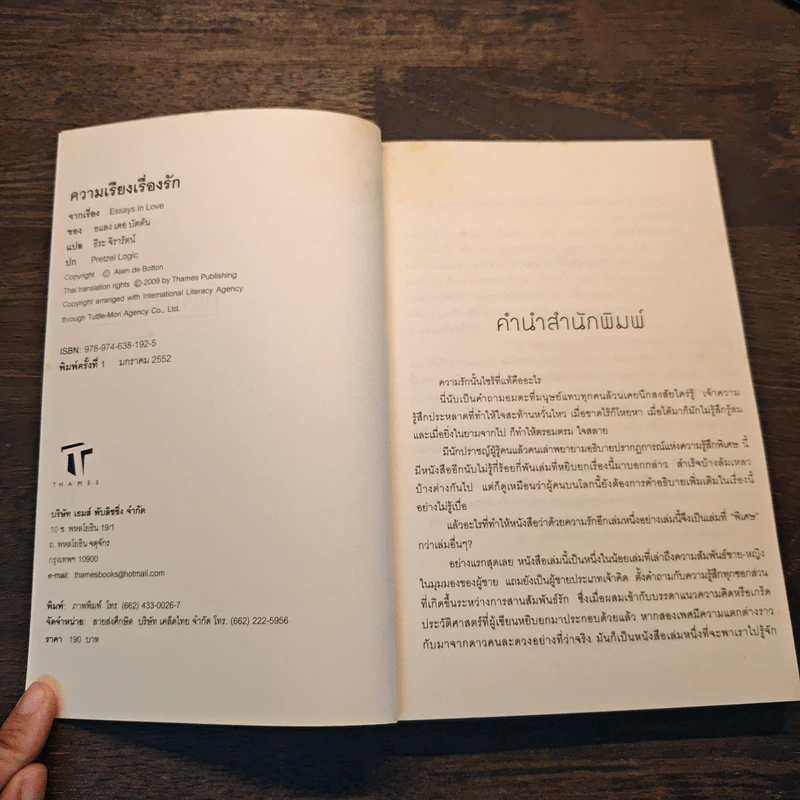 ความเรียงเรื่องรัก
จากเรื่อง Essays in Love
ของ อแลง เดอ บัตตัน
แปล ธีระ จิรารัตน์
ปก Pretzel Logic
Copyright © Alain de Botton
Thai translation rights © 2009 by Thames Publishing
Copyright arranged with International Literacy Agency
through Tuttle-Mori Agency Co., Ltd.
ISBN: 978-974-638-192-5
พิมพ์ครั้งที่ 1 มกราคม 2552
THAMES
บริษัท เธมส์ พับลิชชิ่ง จำกัด
10 ซ. พหลโยธิน 19/1
ถ. พหลโยธิน จตุจักร
กรุงเทพฯ 10900
e-mail: thamesbooks@hotmail.com
พิมพ์: ภาพพิมพ์ โทร. (662) 433-0026-7
จัดจำหน่าย: สายส่งศึกษิต บริษัท เคล็ดไทย จำกัด โทร. (662) 222-5956
ราคา 190 บาท
คำนำสำนักพิมพ์
ความรักนั้นไซร้ที่แท้คืออะไร
นี่นับเป็นคำถามอมตะที่มนุษย์แทบทุกคนล้วนเคยนึกสงสัยใคร่รู้ เจ้าความ
รู้สึกประหลาดที่ทำให้ใจสะท้านหวั่นไหว เมื่อขาดไร้ก็โหยหา เมื่อได้มาก็มักไม่รู้สึกรู้สม
และเมื่อยิ่งในยามจากไป ก็ทำให้ตรอมตรม ใจสลาย
มีนักปราชญ์ผู้รู้คนแล้วคนเล่าพยายามอธิบายปรากฏการณ์แห่งความรู้สึกพิเศษ นี้
มีหนังสืออีกนับไม่รู้กี่ร้อยกี่พันเล่มที่หยิบยกเรื่องนี้มาบอกกล่าว สำเร็จบ้างล้มเหลว
บ้างต่างกันไป แต่ก็ดูเหมือนว่าผู้คนบนโลกนี้ยังต้องการคำอธิบายเพิ่มเติมในเรื่องนี้
อย่างไม่รู้เบื่อ
แล้วอะไรที่ทำให้หนังสือว่าด้วยความรักอีกเล่มหนึ่งอย่างเล่มนี้จึงเป็นเล่มที่ "พิเศษ"
กว่าเล่มอื่นๆ?
อย่างแรกสุดเลย หนังสือเล่มนี้เป็นหนึ่งในน้อยเล่มที่เล่าถึงความสัมพันธ์ชาย-หญิง
ในมุมมองของผู้ชาย แถมยังเป็นผู้ชายประเภทเจ้าคิด ตั้งคำถามกับความรู้สึกทุกซอกส่วน
ที่เกิดขึ้นระหว่างการสานสัมพันธ์รัก ซึ่งเมื่อผสมเข้ากับบรรดาแนวความคิดหรือเกร็ด
ประวัติศาสตร์ที่ผู้เขียนหยิบยกมาประกอบด้วยแล้ว หากสองเพศมีความแตกต่างราว
กับมาจากดาวคนละดวงอย่างที่ว่าจริง มันก็เป็นหนังสือเล่มหนึ่งที่จะพาเราไปรู้จัก